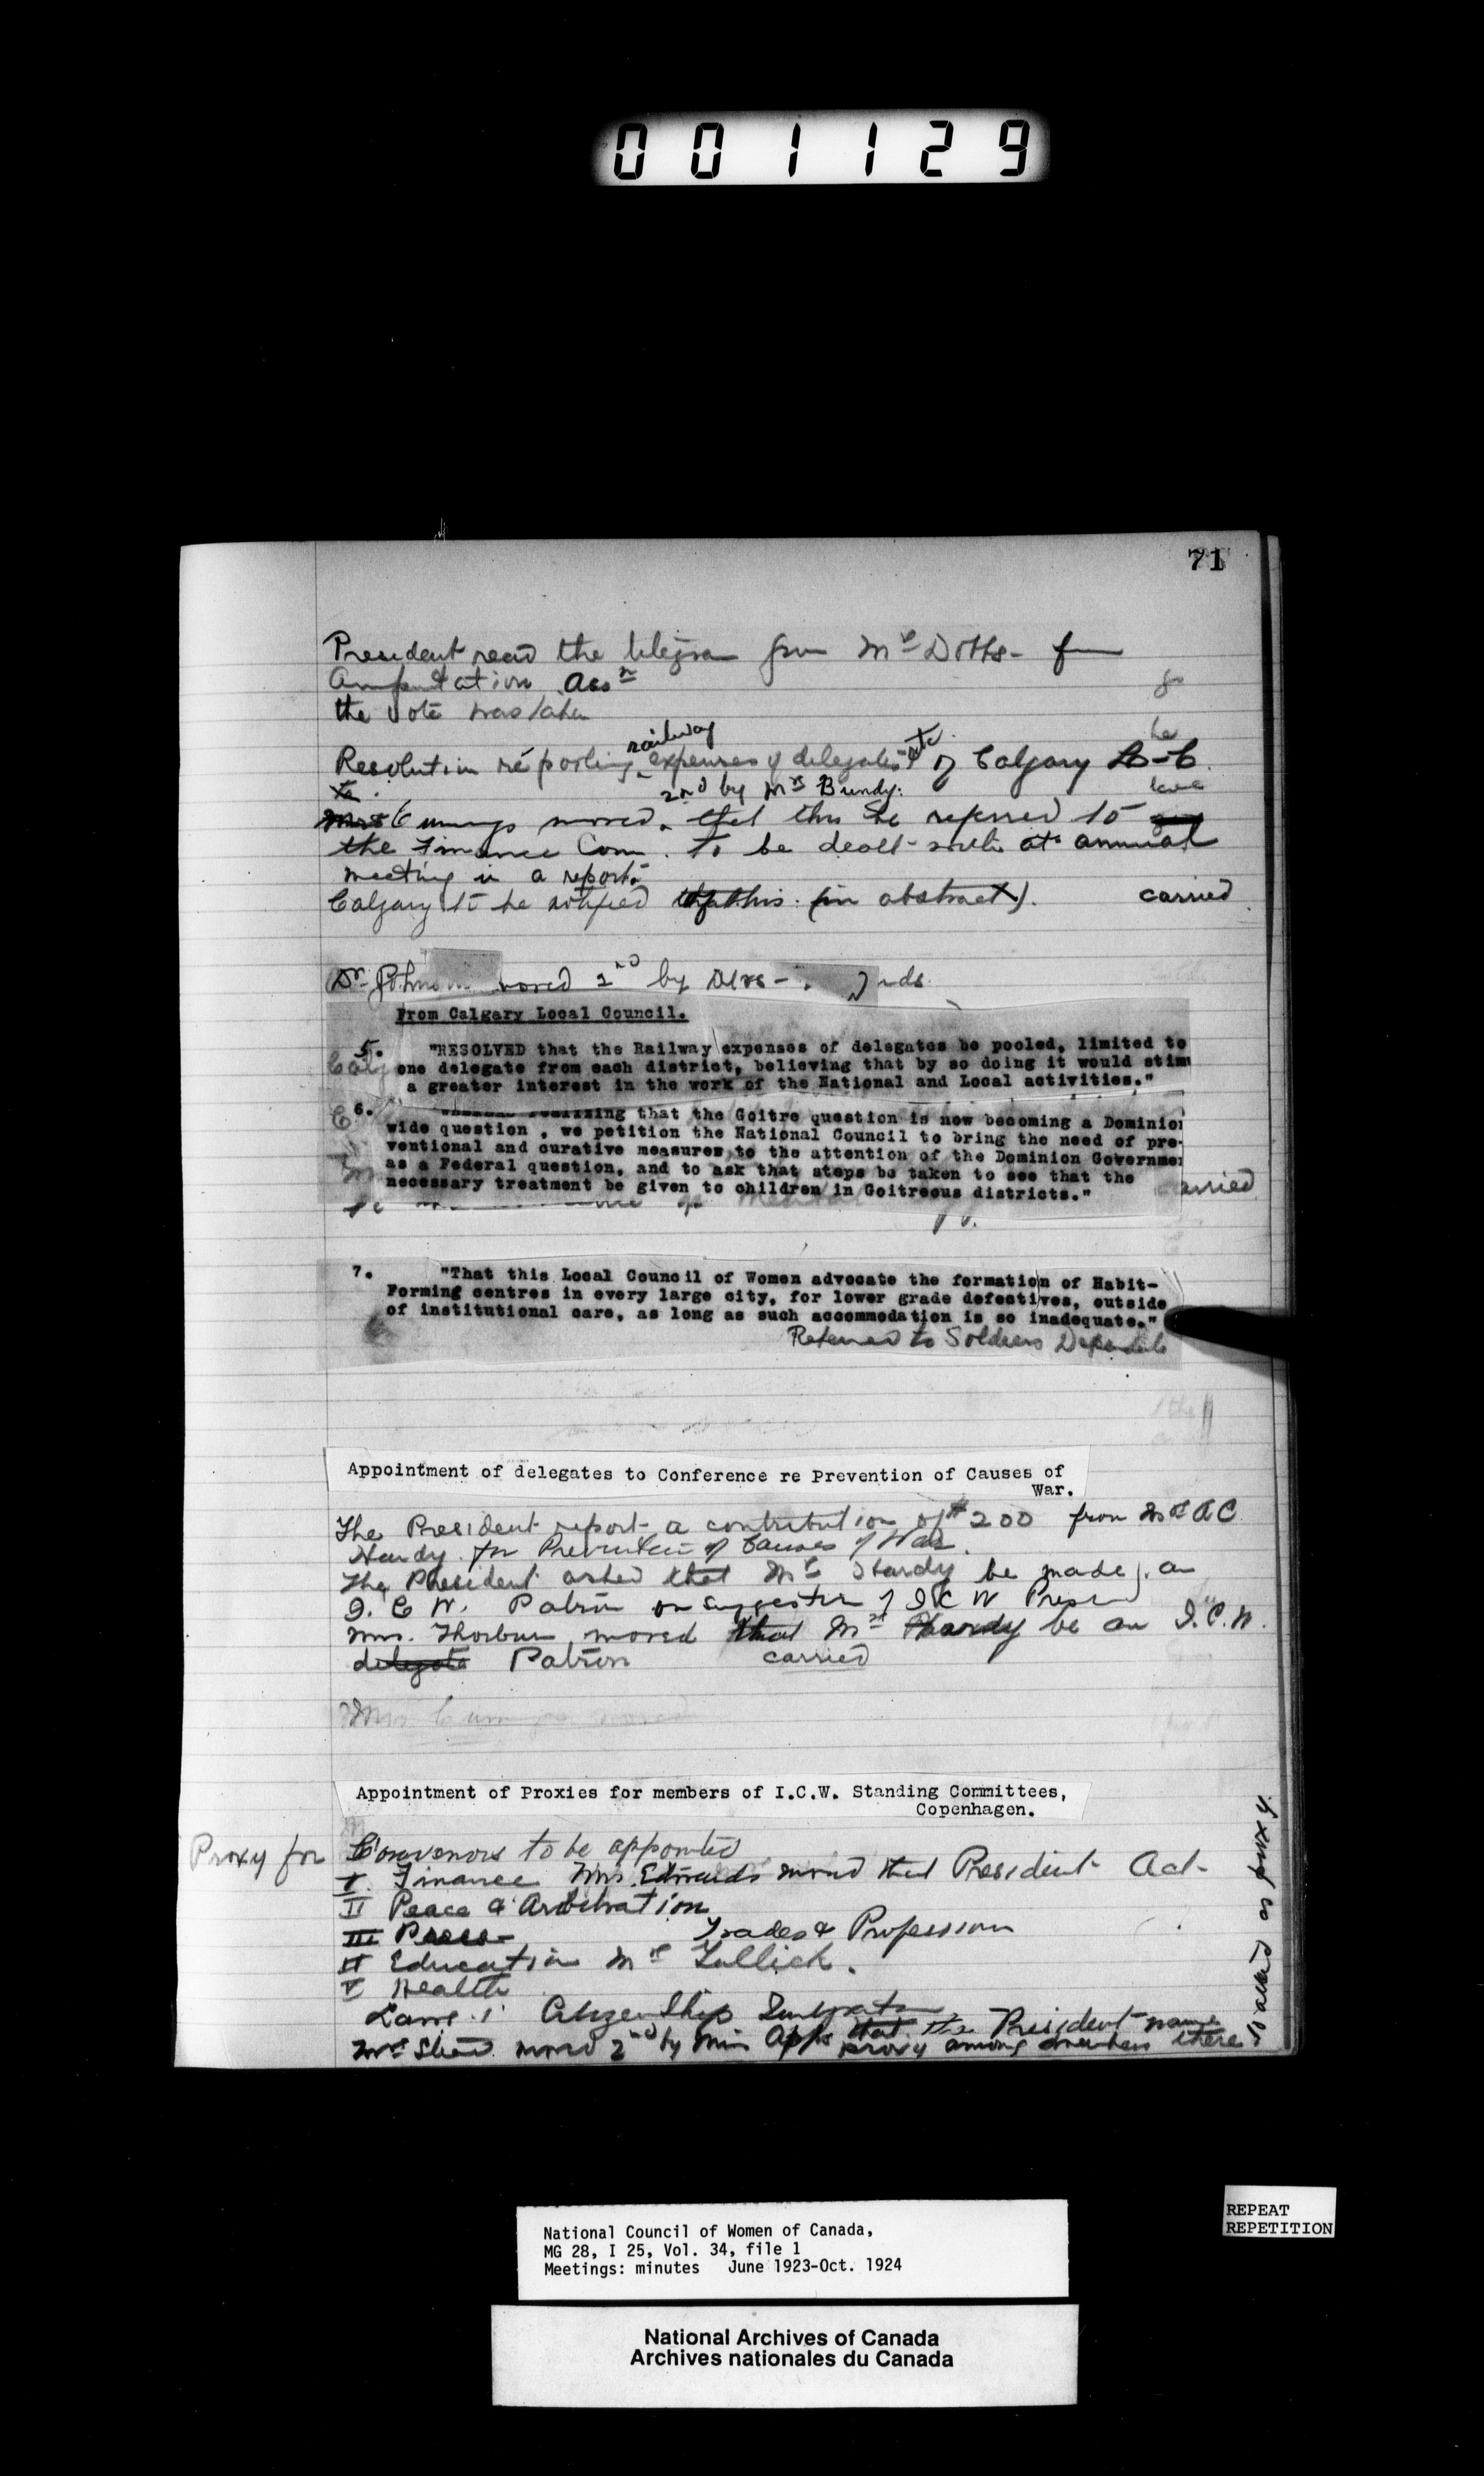 001129
71
President read the telegram from Mrs Dobbs - from
Amputation Assn
the vote was taken
railway
Resolution re pooling expenses of delegates etc of Calgary
2nd by Mrs Bundy.
Mrs Cumings moved that this be referred to
the Finance Com. to be dealt with at annual
meeting in a report.
Calgary to be notified of this (in abstract). carried
Dr. Johnson moved 2nd by Mrs
From Calgary Local Council.
5. "RESOLVED that the Railway expenses of delegates be pooled, limited to
one delegate from each district, believing that by so doing it would stim
a greater interest in the work of the National and Local activities."
6. that the Goitre question is now becoming a Dominion
wide question , we petition the National Council to bring the need of pre-
ventional and curative measures to the attention of the Dominion Governme
as a Federal question, and to ask that steps be taken to see that the
necessary treatment be given to children in Goitreous districts."
carried
7. "That this Local Council of Women advocate the formation of Habit-
Forming centres in every large city, for lower grade defectives, outside
of institutional care, as long as such accommodation is so inadequate."
Referred to Soldiers
Appointment of delegates to Conference re Prevention of Causes of
War.
The President report a contribution of $200 from Mrs A C
Hardy for Prevention of Causes of War.
The President asked that Mrs Hardy be made an
I. C. W. Patron on suggestion of I C W
Mrs. Thorburn moved that Mrs Hardy be an I.C.W.
delegate Patron carried
Mrs Cumings moved
Appointment of Proxies for members of I.C.W. Standing Committees,
Copenhagen.
Proxy for Convenors to be appointed
I. Finance Mrs. Edwards moved that President Act
II Peace & Arbitration
III Press - Trades & Profession
IV Education Mrs
V Health
Laws Citizenship
Mrs moved 2nd by Miss that the President name
proxy among members there
as proxy.
National Council of Women of Canada,
MG 28, I 25, Vol. 34, file 1
Meetings: minutes June 1923-Oct. 1924
REPEAT
REPETITION
National Archives of Canada
Archives nationales du Canada